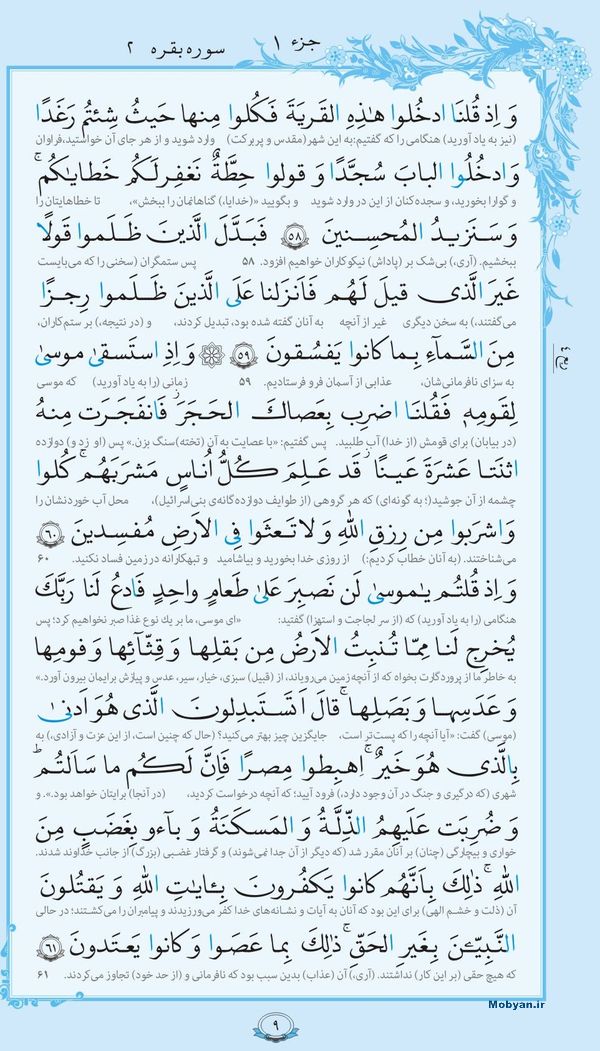 جزء ۱ سوره بقره ۲
وَ اِذ قُلنَا ادخُلوا هٰذِهِ القَريَةَ فَكُلوا مِنها حَيثُ شِئتُم رَغَدًا
(نیز به یاد آورید) هنگامی را که گفتیم: به این شهر (مقدس و پربرکت) وارد شوید و از هر جای آن خواستید، فراوان
وَادخُلُوا البابَ سُجَّدًا وَ قولوا حِطَّةٌ نَغفِرلَكُم خَطاياكُم ۚ
و گوارا بخورید، و سجده‌کنان از این در وارد شوید و بگویید «(خدایا،) گناهانمان را ببخش»، تا خطاهایتان را
وَ سَنَزيدُ المُحسِنينَ ﴿۵۸﴾ فَبَدَّلَ الَّذينَ ظَلَموا قَولًا
ببخشیم. (آری،) بی‌شک بر (پاداش) نیکوکاران خواهیم افزود. ۵۸ پس ستمگران (سخنی را که می‌بایست
غَيرَ الَّذى قيلَ لَهُم فَاَنزَلنا عَلَى الَّذينَ ظَلَموا رِجزًا
می‌گفتند،) به سخن دیگری غیر از آنچه به آنان گفته شده بود، تبدیل کردند، و (در نتیجه،) بر ستم‌کاران،
مِنَ السَّمآءِ بِما كانوا يَفسُقونَ ﴿۵۹﴾ وَ اِذِ استَسقىٰ موسىٰ
به سزای نافرمانی‌شان، عذابی از آسمان فرو فرستادیم. ۵۹ زمانی (را به یاد آورید) که موسی
لِقَومِهٖ فَقُلنَا اضرِب بِعَصاكَ الحَجَرَ ۖ فَانفَجَرَت مِنهُ
(در بیابان) برای قومش (از خدا) آب طلبید. پس گفتیم: «با عصایت به آن (تخته)سنگ بزن.» پس (او زد و) دوازده
اثنَتا عَشرَةَ عَينًا ۖ قَد عَلِمَ كُلُّ اُناسٍ مَشرَبَهُم ۖ كُلوا
چشمه از آن جوشید(؛ به گونه‌ای) که هر گروهی (از طوایف دوازده‌گانه‌ی بنی‌اسرائیل)، محل آب خوردنشان را
وَ اشرَبوا مِن رِزقِ اللهِ وَ لا تَعثَوا فِى الاَرضِ مُفسِدينَ ﴿۶۰﴾
می‌شناختند. (به آنان خطاب کردیم:) از روزی خدا بخورید و بیاشامید و تبهکارانه در زمین فساد نکنید. ۶۰
وَ اِذ قُلتُم يٰموسىٰ لَن نَصبِرَ عَلىٰ طَعامٍ واحِدٍ فَادعُ لَنا رَبَّكَ
هنگامی (را به یاد آورید) که (از سر لجاجت و استهزا) گفتید: «ای موسی، ما بر یک نوع غذا صبر نخواهیم کرد؛ پس
يُخرِج لَنا مِمّا تُنبِتُ الاَرضُ مِن بَقلِها وَ قِثّآئِها وَ فومِها
به خاطر ما از پروردگارت بخواه که از آنچه زمین می‌رویاند، از (قبیل) سبزی، خیار، سیر، عدس و پیازش برایمان بیرون آورد.»
وَ عَدَسِها وَ بَصَلِها ۖ قالَ اَتَستَبدِلونَ الَّذى هُوَ اَدنىٰ
(موسی) گفت: «آیا آنچه را که پست‌تر است، جایگزین چیز بهتر می‌کنید؟ (حال که چنین است، از این عزت و آزادی،) به
بِالَّذى هُوَ خَيرٌ ۚ اِهبِطوا مِصرًا فَاِنَّ لَكُم ما سَاَلتُم ۗ
شهری (که درگیری و جنگ در آن وجود دارد،) فرود آیید؛ که آنچه درخواست کردید، (در آنجا) برایتان خواهد بود.». و
وَ ضُرِبَت عَلَيهِمُ الذِّلَّةُ وَ المَسكَنَةُ وَ بآءو بِغَضَبٍ مِنَ
خواری و بیچارگی (چنان) بر آنان مقرر شد (که دیگر از آن جدا نمی‌شوند) و گرفتار غضبی (بزرگ) از جانب خداوند شدند.
اللهِ ۗ ذٰلِكَ بِاَنَّهُم كانوا يَكفُرونَ بِـٔايٰتِ اللهِ وَ يَقتُلونَ
آن (ذلت و خشم الهی) برای این بود که آنان به آیات و نشانه‌های خدا کفر می‌ورزیدند و پیامبران را می‌کشتند؛ در حالی
النَّبِيّـٖنَ بِغَيرِ الحَقِّ ۗ ذٰلِكَ بِما عَصَوا وَ كانوا يَعتَدونَ ﴿۶۱﴾
که هیچ حقی (بر این کار) نداشتند. (آری،) آن (عذاب) بدین سبب بود که نافرمانی و (از حد خود) تجاوز می‌کردند. ۶۱
Mobyan.ir
۹